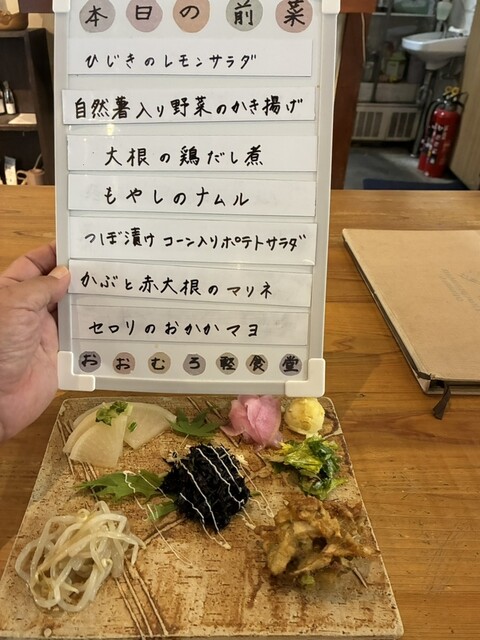 本日の前菜
ひじきのレモンサラダ
自然薯入り野菜のかき揚げ
大根の鶏だし煮
もやしのナムル
つぼ漬けコーン入りポテトサラダ
かぶと赤大根のマリネ
セロリのおかかマヨ
おおむろ軽食堂